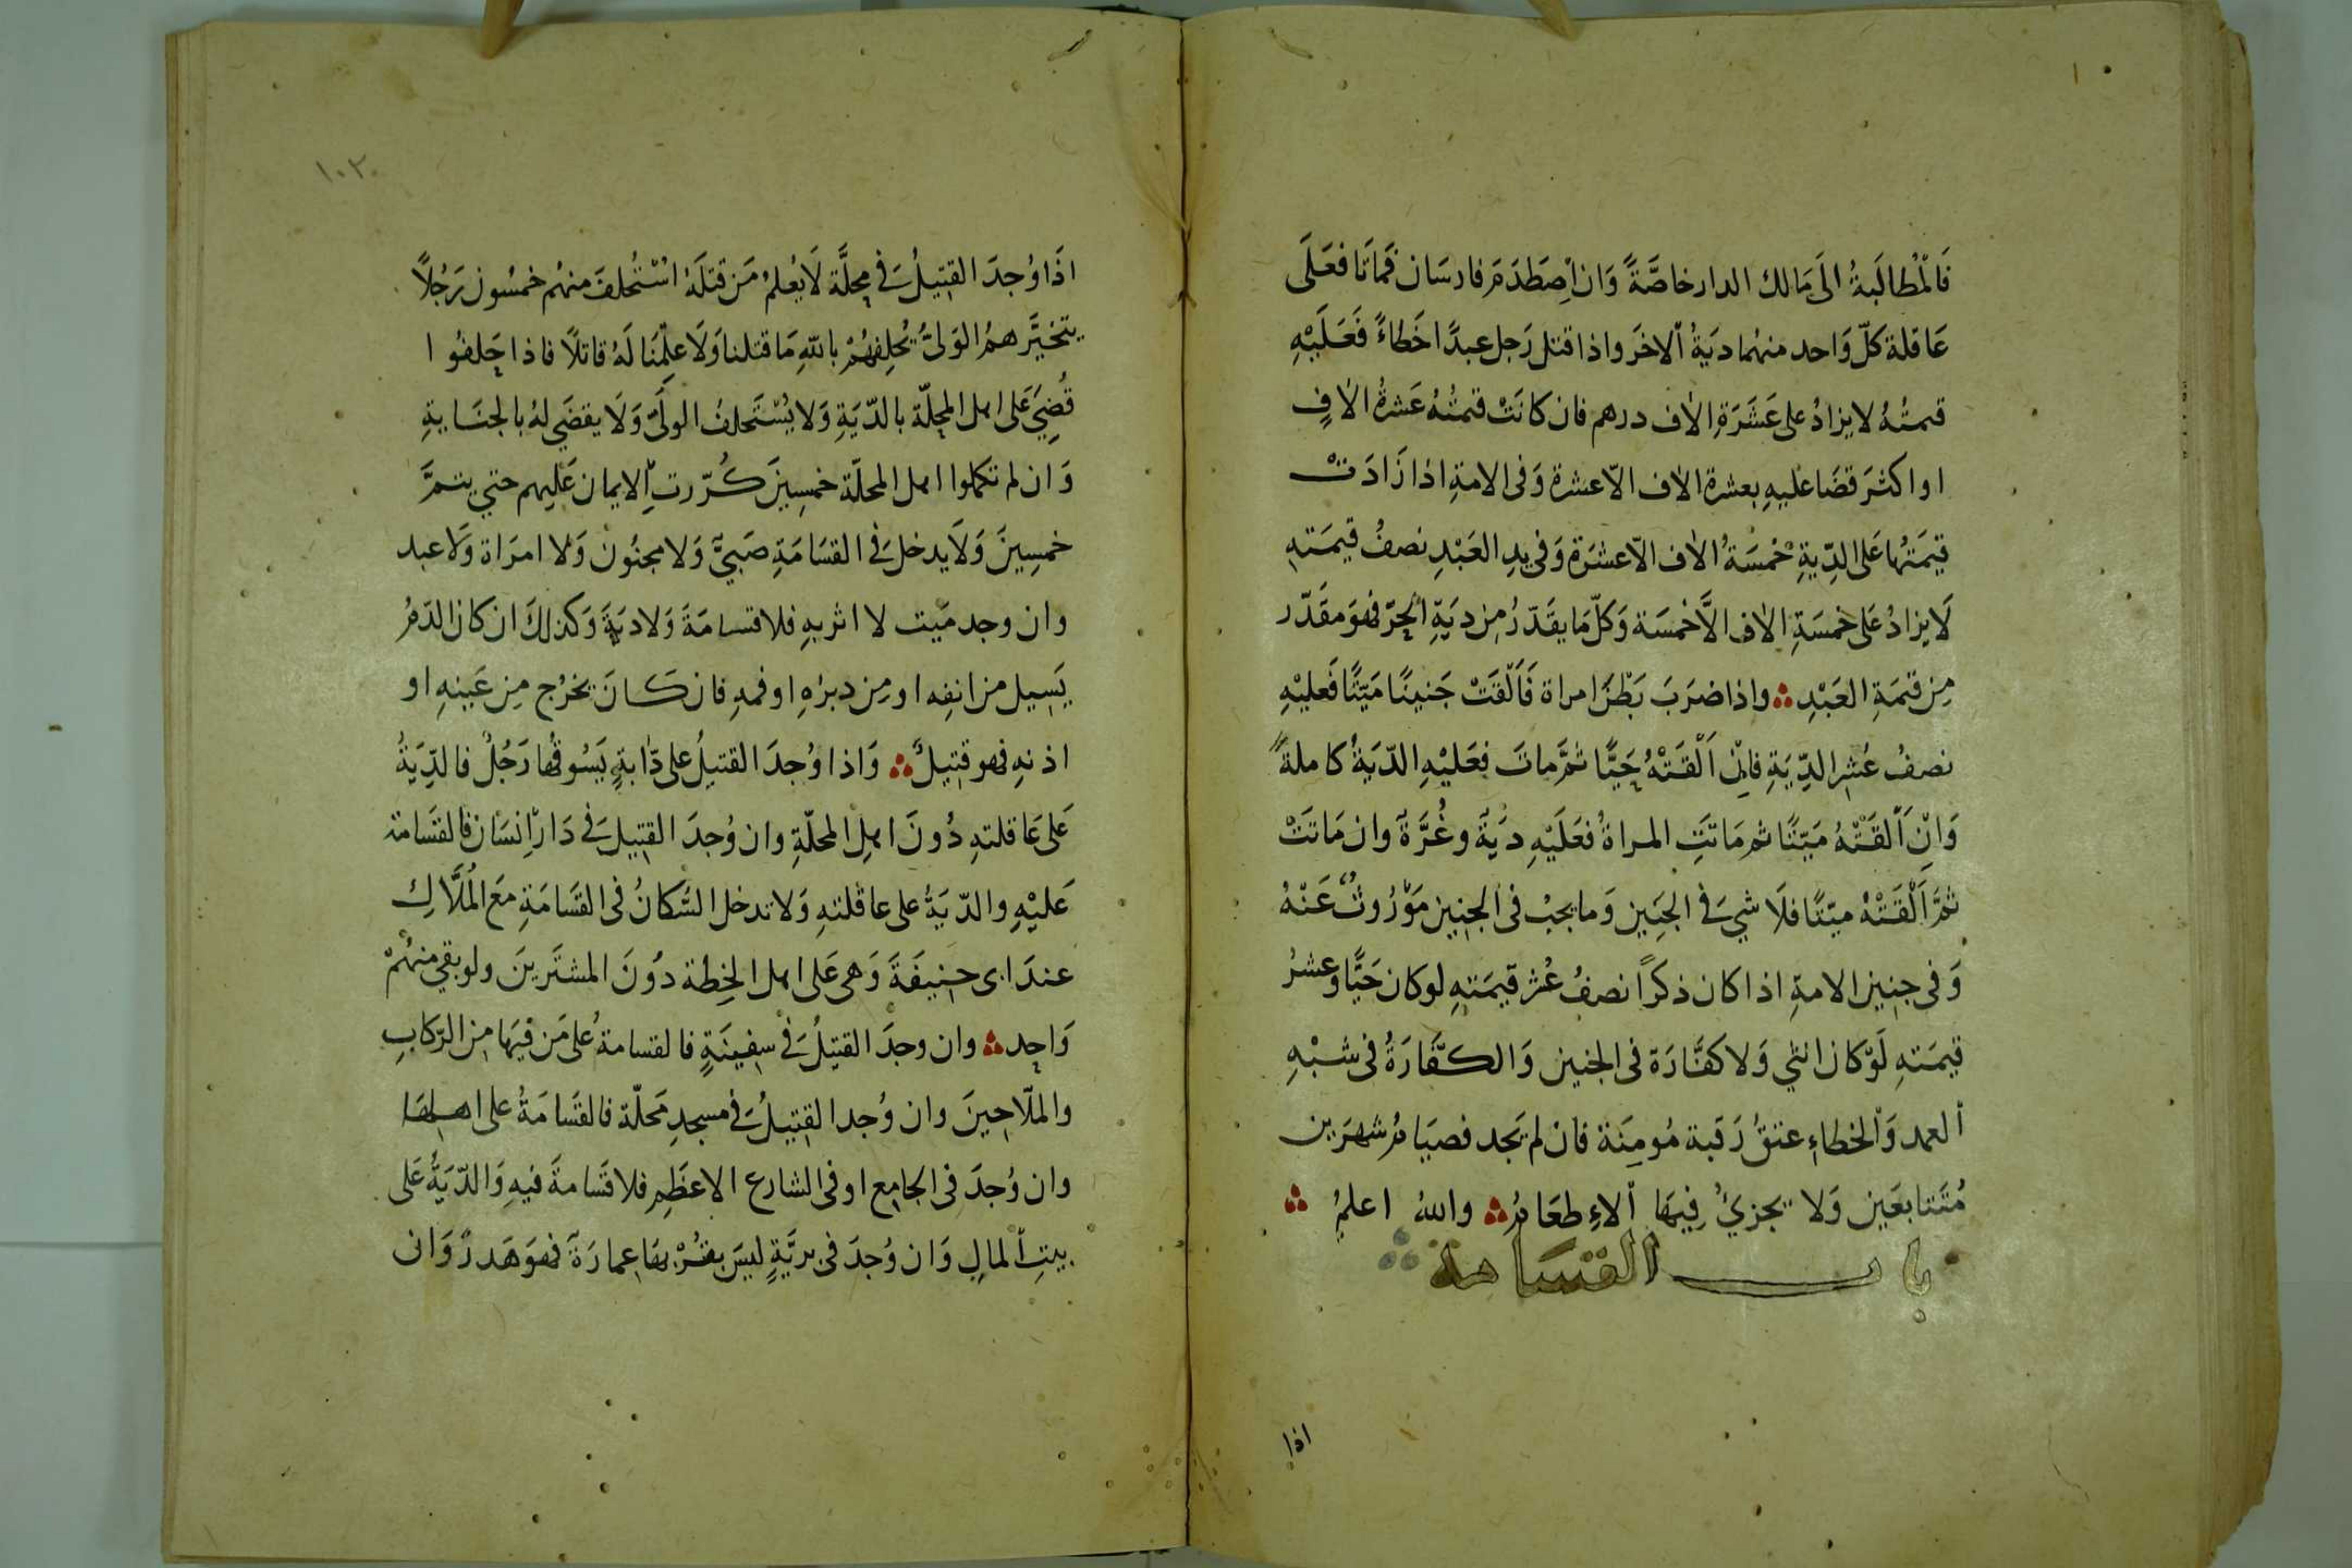 فَالْمُطَالَبَةُ الَى مَالك الدار خاصَّةً وَان اِصْطَدَمَ فارسَان فَماتَا فعَلَى
عَاقلة كلّ وَاحد منهُما ديَةُ اْلاخَر واذا قتل رَجل عبدًا خَطاءً فَعَلَيْهِ
قمتُهُ لا يزادُ على عَشَرَةِ الاف درهم فان كانَتْ قمتُهُ عَشرةُ الافٍ
او اكثرَ قضَا عَليهِ بعشرة الاف الاّ عشرة وَفى الامةِ اذا زَادَتْ
قيمَتُها عَلى الدِّيةِ خمْسَةُ الاف الاّ عشَرَة وَفى يدِ العَبْدِ نصفُ قيمَتهِ
لَا يزادُ عَلى خمسَةِ الاف الَّا خمسَة وَكلّ مَا يقَدّرُ مِن ديَةِ الحِرّ فهوَ مقدّر
مِن قمَةِ العَبْدِ واذا ضرَبَ بَطْنَ امراة فَاَلْقَتْ جَنينًا مَيّتًا فَعليْهِ
نصفُ عُشرِ الدِّيَةِ فاِنْ اَلْقَتْهُ حَيًّا ثمَّ ماتَ فعَليْهِ الدّيَةُ كاملةً
وَانِ اَلْقَتْهُ مَيّتًا ثم مَاتَتِ المراةُ فعَلَيْهِ ديَةٌ وغُرَّةٌ وان مَاتَتْ
ثمَّ اَلْقَتْهُ ميّتًا فلَا شيَ فى الجَنِين وَما يجبُ فى الجنِين مَوْرُوثٌ عَنْهُ
وَفى جنِين الامةِ اذا كان ذكرًا نصفُ عُشر قيمَتهِ لو كان حَيًّا وعشرُ
قيمَتهِ لَوْ كان انثي وَلا كفّارَة فى الجنين وَالكفّارَةُ فى شبْهِ
العمد وَالخطاءِ عتقُ رَقَبة مُومِنَة فان لم يَجد فصيَامُ شهرَين
مُتَتابعَين وَلا يجزيُ فِيهَا الاءِطعَامُ واللهُ اعلمُ
باب القسَامة
اذا
١٠٢
اذَا وُجدَ القتِيلُ فى محِلَّة لَا يُعلمُ مَن قتلَهُ استُحْلفَ منهُم خمسُون رَجُلاً
يتخيَّرهمُ الوَلىُّ يُحلِفهُمْ باللّهِ مَا قتلنا وَلَا عَلِمْنَا لَهُ قاتلاً فاذا حَلفُوا
قُضِيَ عَلى اهل المحِلّة بالدّيَةِ وَلا يُسْتَحلفُ الولىّ وَلَا يقضَى لهُ بالجنَايةِ
وَان لم تكملوا اهل المحلّة خمسِينَ كُرّرتِ الايمان عَليهم حتي يتمَّ
خمسِينَ وَلَا يدخل فى القسَامَةِ صَبيٌّ وَلا مجنُون وَلا امرَاة وَلا عبد
وان وجد مَيت لا اثر بهِ فلا قسامَةَ وَلا ديَةَ وَكذلكَ ان كان الدّمُ
يَسِيل من انفِه او مِن دبرُهِ او فمهِ فان كَانَ يخرُج مِن عَينهِ او
اذنهِ فهو قتِيلٌ وَاذا وُجدَ القتيلُ على دَّابةٍ يَسُوقُها رَجُلٌ فالدِّيَةُ
عَلى عَاقلتهِ دُونَ اهلِ المحلّةِ وان وُجدَ القتِيل فى دَار انسَان فالقسَامة
عَليْهِ والدّيَةُ على عاقلتهِ وَلا تدخل السُّكانُ فى القسَامَةِ مَعَ الْمُلَّاكِ
عندَ ابى حنِيفَةَ وَهى عَلى اهل الخِطّة دوُنَ المشترينَ ولو بقي منهُمْ
وَاحِد وان وجدَ القتيلُ فى سفِينَةٍ فالقسامةُ عَلى مَن فيهَا مِن الرّكابِ
والملّاحِينَ وان وُجد القتِيلُ فى مسجدِ مَحلّة فالقسَامَةُ على اهلهَا
وان وُجدَ فى الجامِع او فى الشارع الاعظَمِ فلا قسَامةَ فيهِ وَالدّيَةُ عَلى
بيتِ المالِ وَان وُجدَ فى بريَّةٍ ليسَ بقُرْبهَا عِمارَةٌ فهوَ هَدرٌ وَان